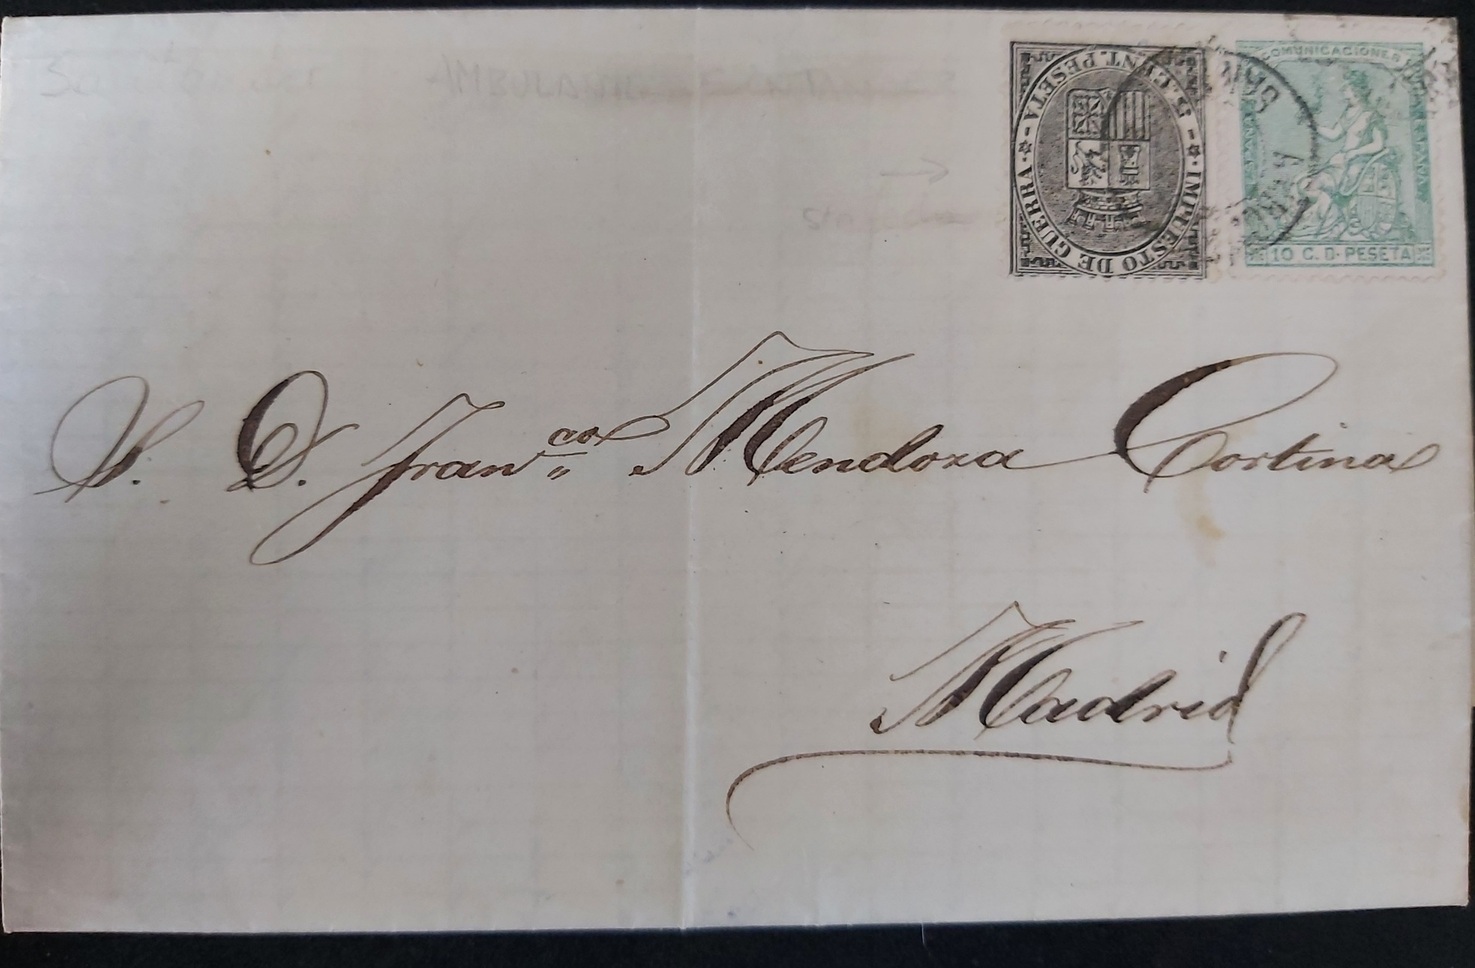 Santander AMBULANTE
5 CENT. PESETA
IMPUESTO DE GUERRA
COMUNICACIONES
ESPAÑA
10 C. D. PESETA
S. D. Fran.co Mendoza Cortina
Madrid